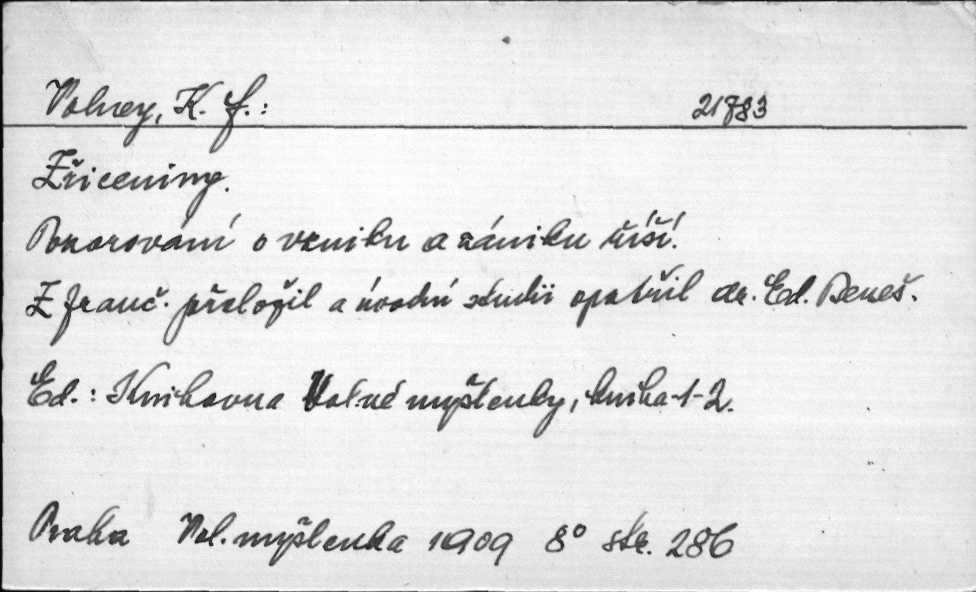 Volney, K. F.: 21783
Zříceniny.
Pozorování o vzniku a zániku říší.
Z franc. přeložil a úvodní studii opatřil dr. Ed. Beneš.
Ed.: Knihovna Volné myšlenky, kniha 1-2.
Praha Vol. myšlenka 1909 8° str. 286